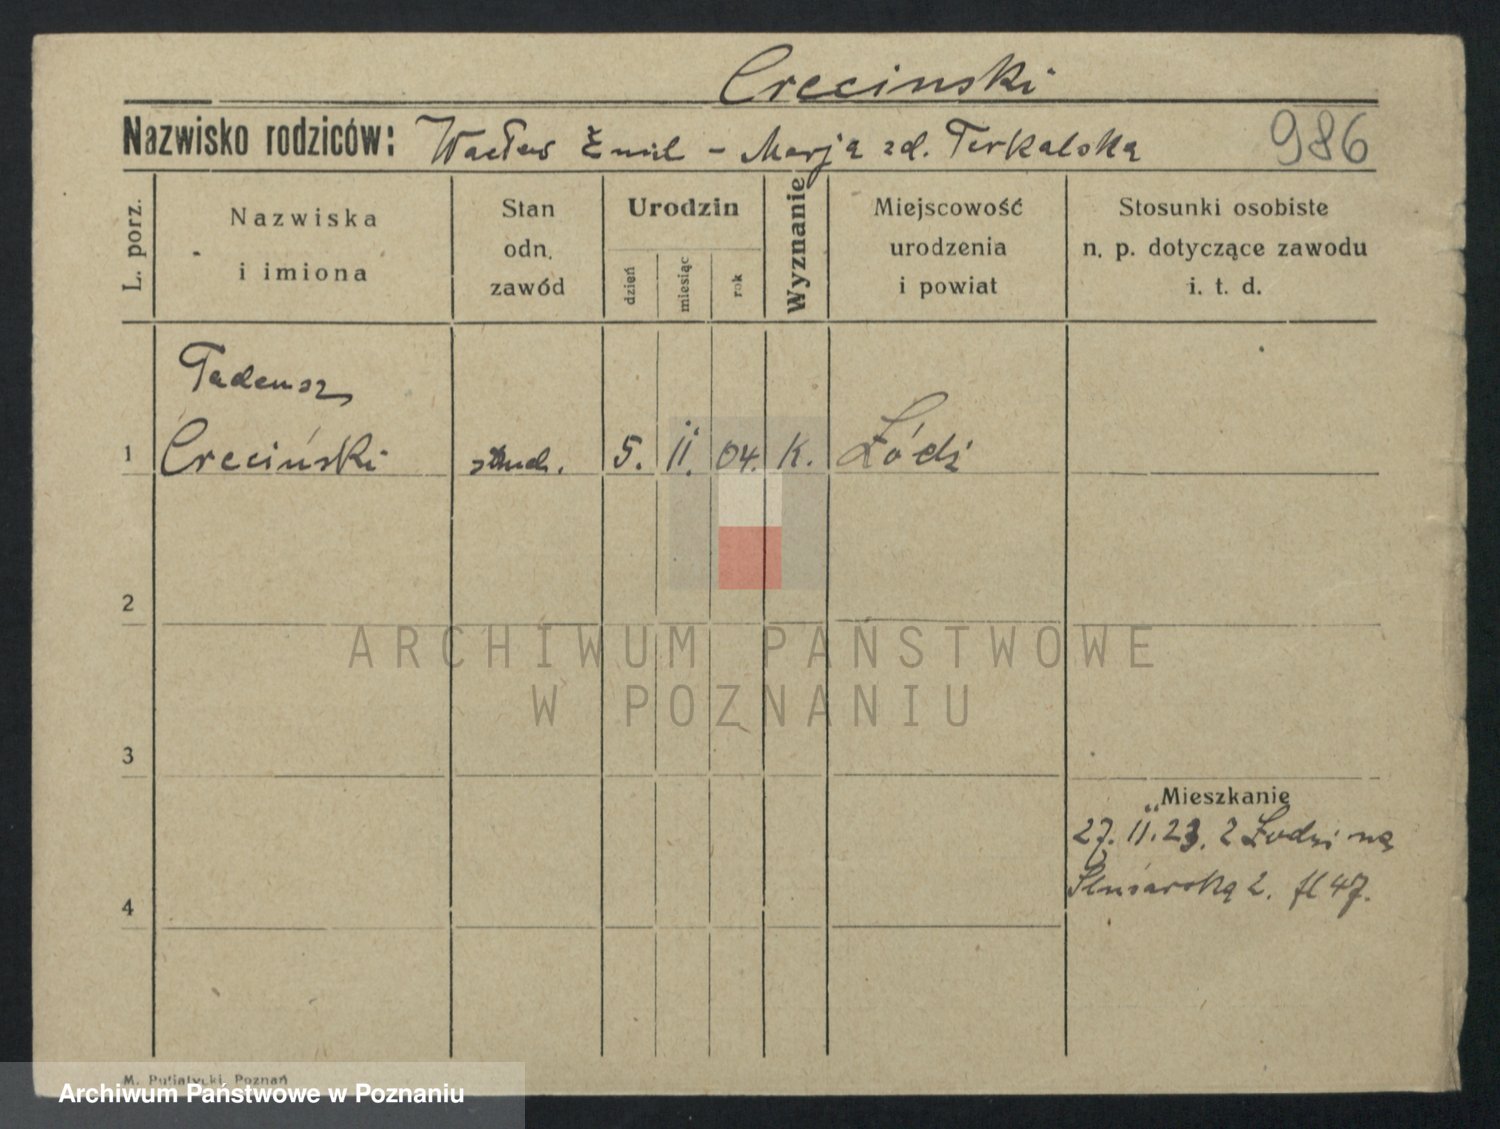 Creciński
Nazwisko rodziców: Wacław Emil - Marja zd. Terkalska 986
L. porz.
Nazwiska
i imiona
Stan
odn.
zawód
Urodzin
dzień
miesiąc
rok
Wyznanie
Miejscowość
urodzenia
i powiat
Stosunki osobiste
n. p. dotyczące zawodu
i. t. d.
Tadeusz
1 Creciński stud. 5. II. 04. K. Łódź
2
ARCHIWUM PAŃSTWOWE
W POZNANIU
3
Mieszkanie
27. II. 23. z Łodzi na
4
M. Putiatycki, Poznań
Archiwum Państwowe w Poznaniu